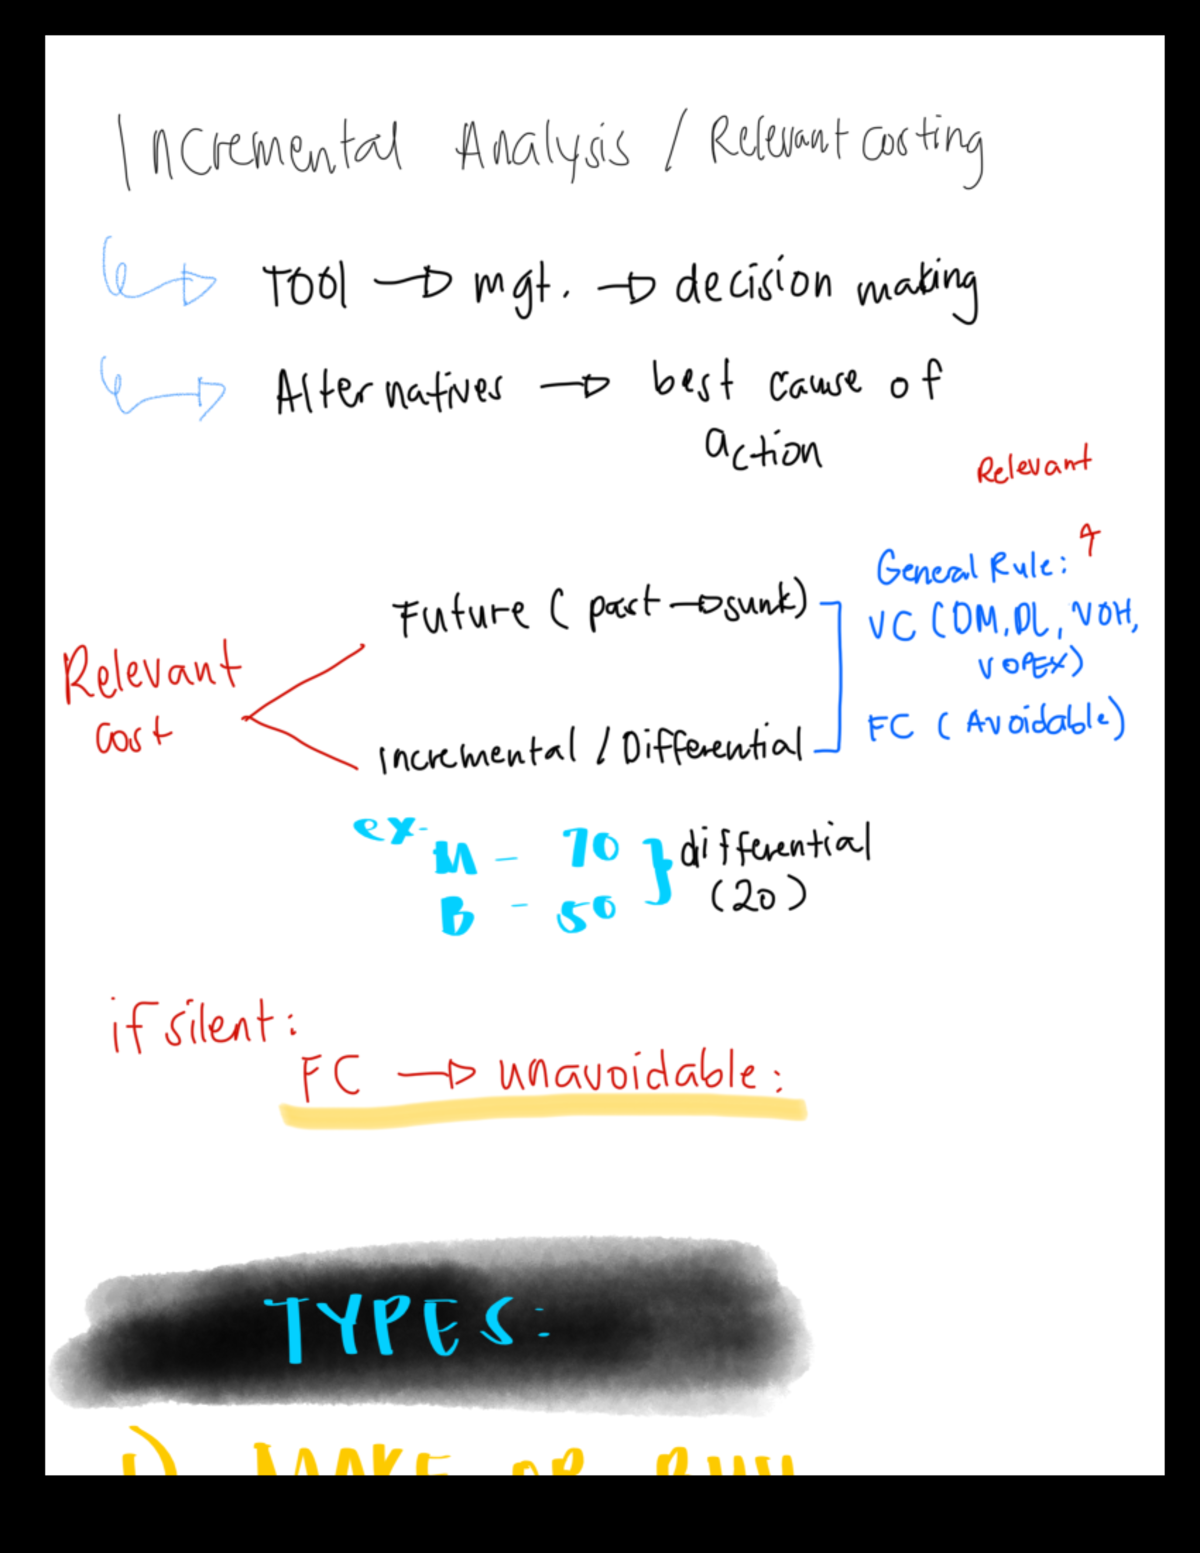 Incremental Analysis / Relevant costing
TOOl → mgt. → decision making
Alternatives → best cause of
action
Relevant
General Rule:
Future ( past → sunk)
VC (DM, DL, VOH,
VOPEX)
Relevant
cost
FC ( Avoidable)
Incremental / Differential
ex-
M - 70
B - 50
differential
(20)
if silent:
FC → unavoidable:
TYPES:
1) MAKE OR BUY